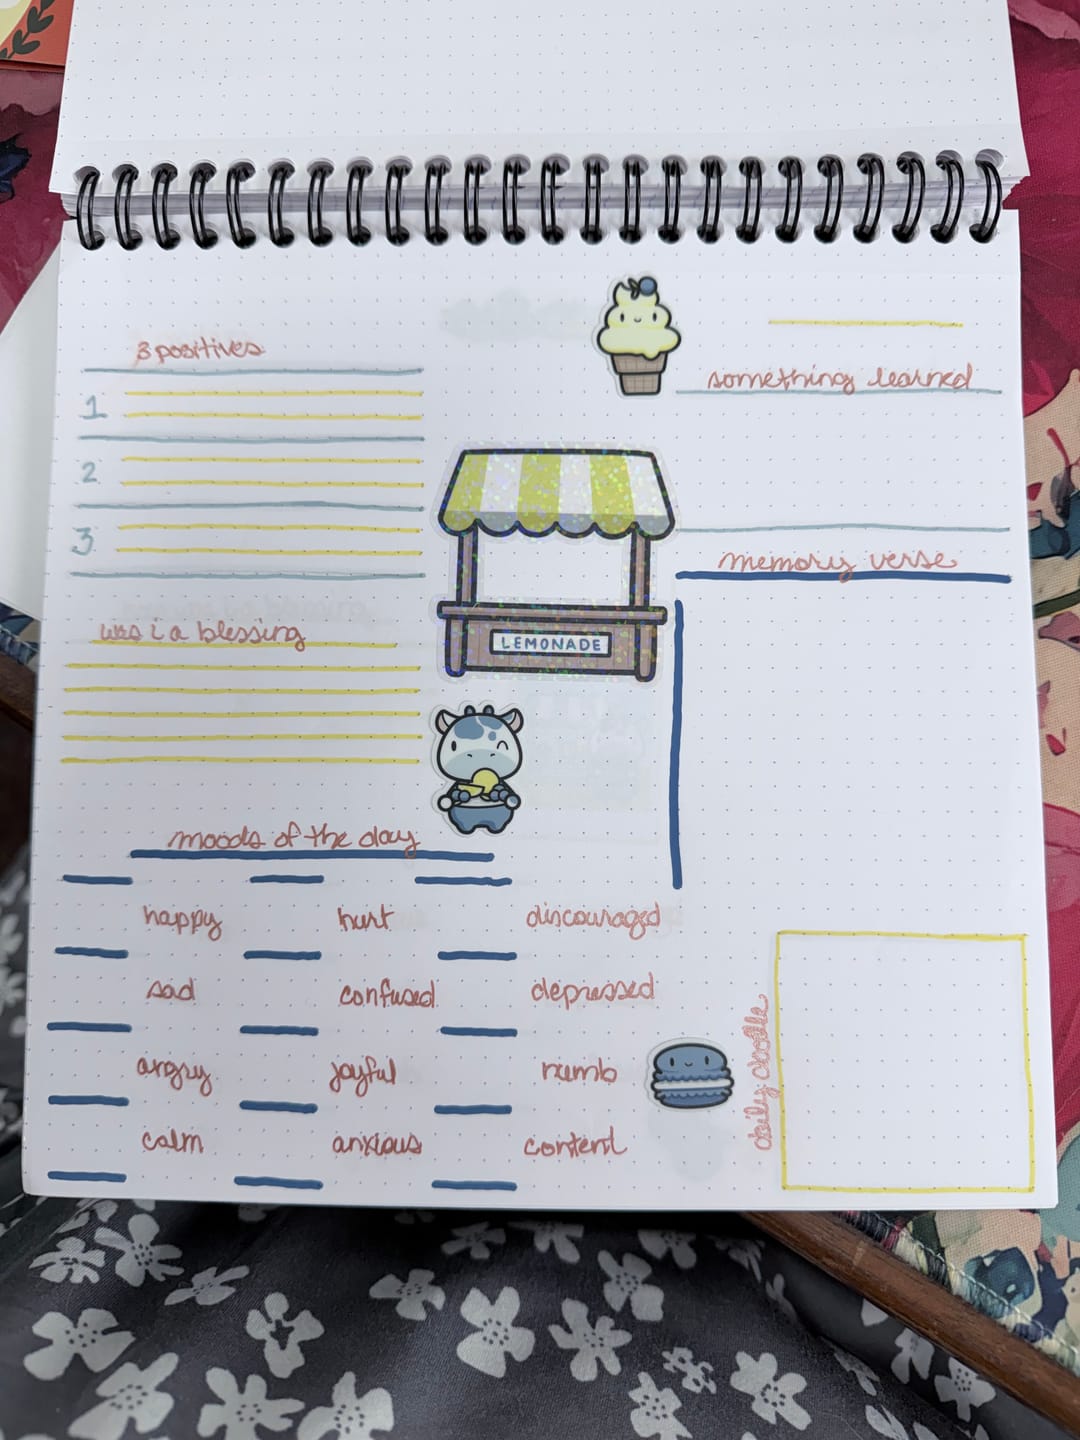 3 positives
1
2
3
was i a blessing
something learned
memory verse
LEMONADE
moods of the day
happy hurt discouraged
sad confused depressed
angry joyful numb
calm anxious content
daily doodle